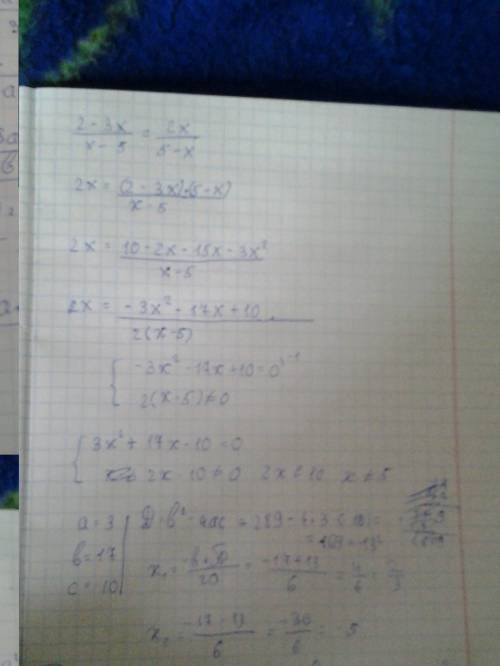 (2 - 3x)/(x - 5) = 2x/(5 - x)
2x = (2 - 3x)·(5 - x)/(x - 5)
2x = (10 - 2x - 15x - 3x²)/(x - 5)
2x = (-3x² - 17x + 10)/(2(x - 5))
{ -3x² - 17x + 10 = 0 |·-1
2(x - 5) ≠ 0
{ 3x² + 17x - 10 = 0
2x - 10 ≠ 0 2x ≠ 10 x ≠ 5
a = 3 D = b² - 4ac = 289 - 4·3·(-10) =
b = 17 = 169 = 13²
c = -10 x₁ = (-b + √D)/2a = (-17 + 13)/6 = 4/6 = 2/3
x₂ = (-17 - 13)/6 = -30/6 = 5